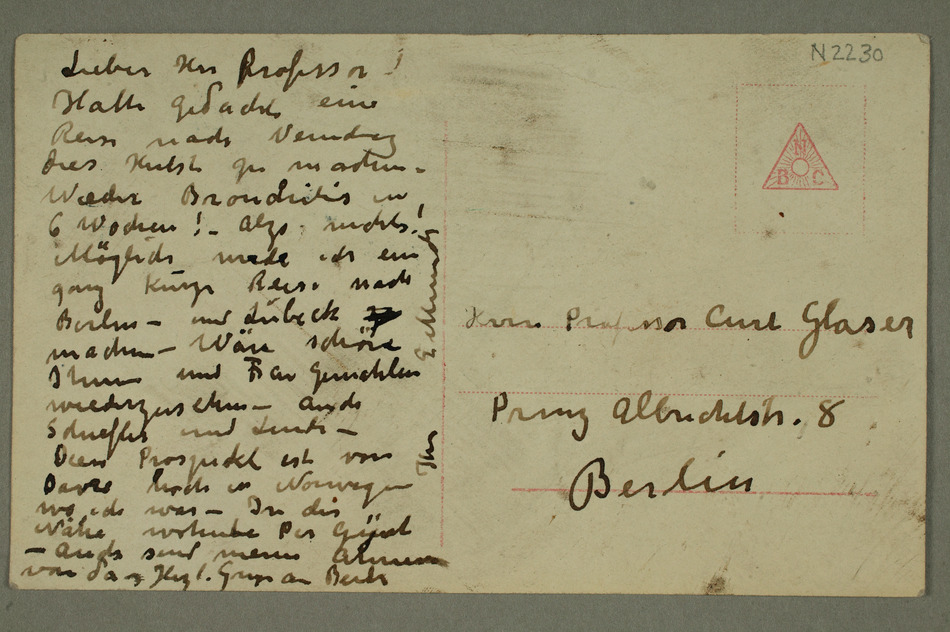 Lieber Herr Professor!
Hatte gedacht eine
Reise nach Venedig
dies Herbst zu machen –
Wieder Bronchitis in
6 Wochen! – Also nichts!
Möglich werde ich ein
ganz kurze Reise nach
Berlin – und Lübeck
machen – Wäre schön
Ihnen und Frau Gemahlin
wiederzusehen – auch
Schiefler und Linde –
Dies Prospekt ist von
Dovre hoch in Norwegen
wo ich war – In die
Nähe wohnte Per Gynt
– auch sind meine Ahnen
von da – Herzl. Gruss an Beide
Ihr E Munch
N2230
N
B C
Herrn Professor Curt Glaser
Prinz Albrechtstr. 8
Berlin